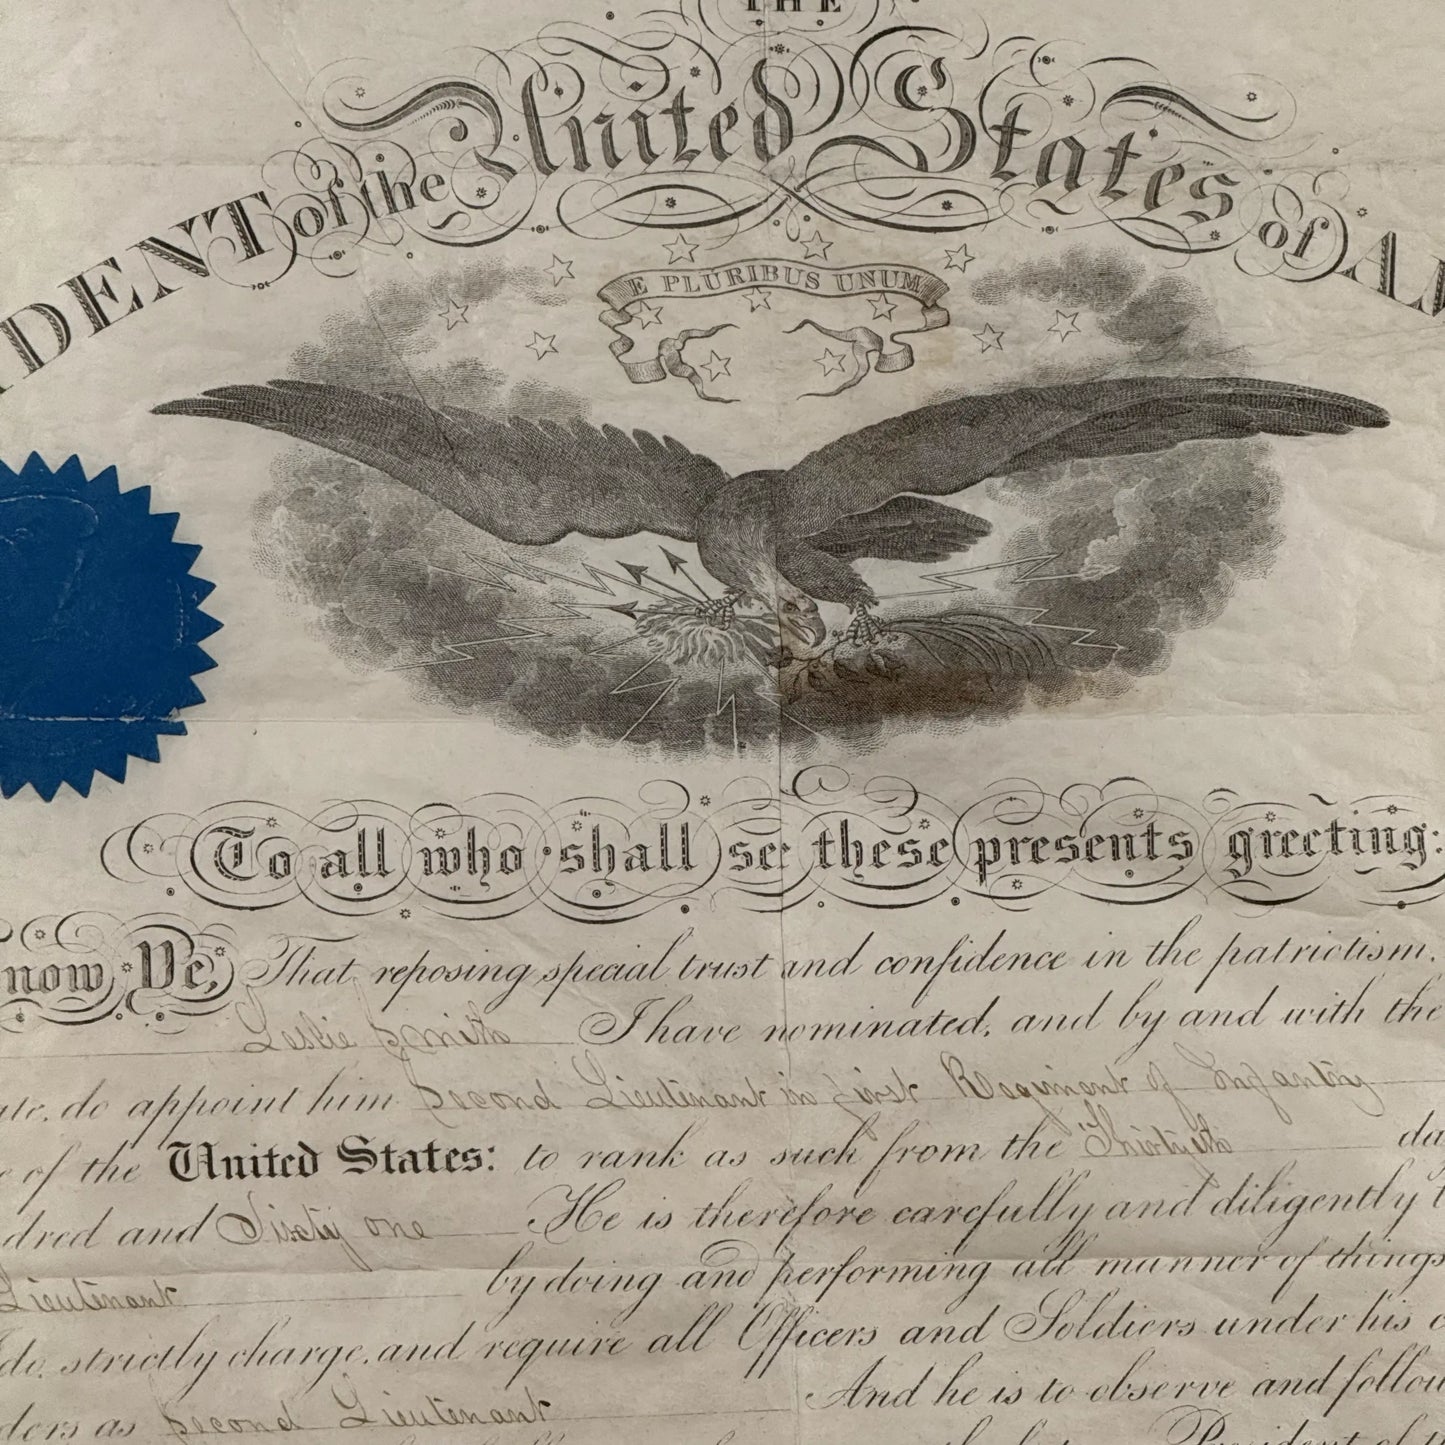 THE
IDENT of the United States of AM
E PLURIBUS UNUM
To all who shall see these presents greeting:
now Ye, That reposing special trust and confidence in the patriotism,
Leslie Smith I have nominated, and by and with the
ate, do appoint him Second Lieutenant in First Regiment of Infantry
e of the United States: to rank as such from the Thirtyeth da
dred and Sixty one He is therefore carefully and diligently t
Lieutenant by doing and performing all manner of things
do strictly charge, and require all Officers and Soldiers under his c
ders as Second Lieutenant And he is to observe and follow
President of th